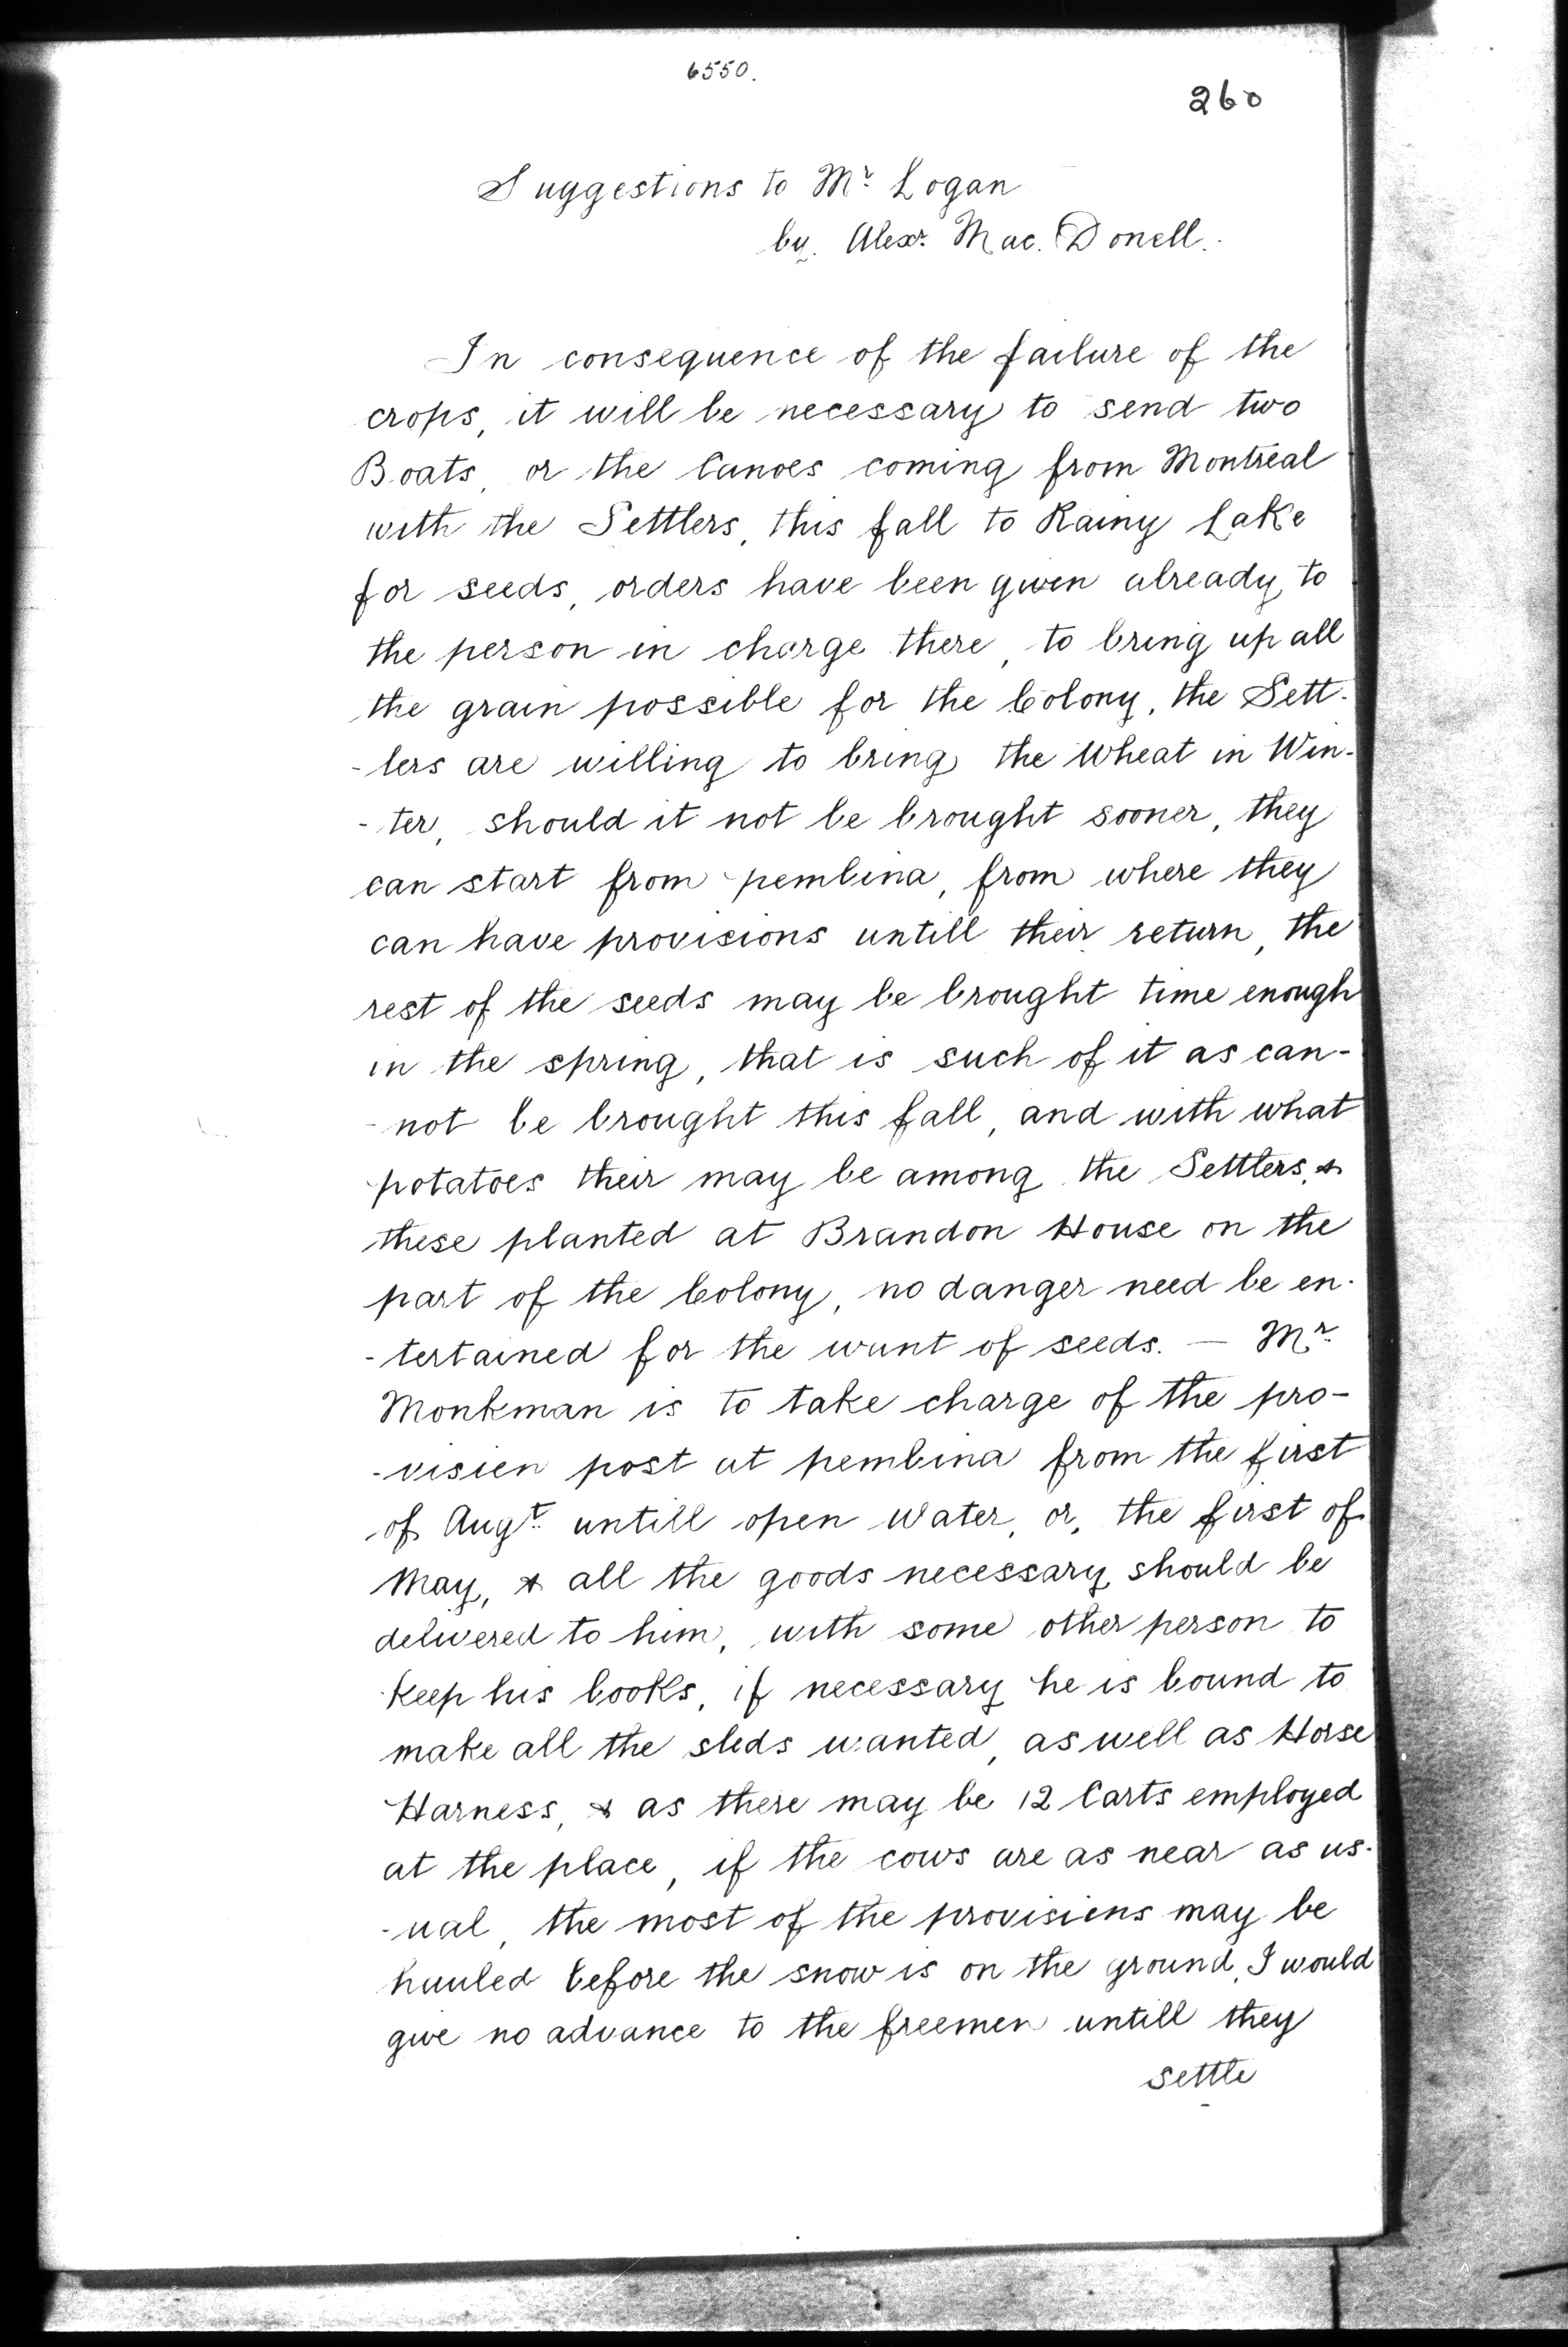 6550.
260
Suggestions to Mr. Logan
by. Alexr. Mac. Donell.
In consequence of the failure of the
crops, it will be necessary to send two
Boats, or the Canoes coming from Montreal
with the Settlers, this fall to Rainy Lake
for seeds, orders have been given already to
the person in charge there, to bring up all
the grain possible for the Colony, the Sett-
-lers are willing to bring the Wheat in Win-
-ter, should it not be brought sooner, they
can start from pembina, from where they
can have provisions untill their return, the
rest of the seeds may be brought time enough
in the spring, that is such of it as can-
-not be brought this fall, and with what
potatoes their may be among the Settlers, &
these planted at Brandon House on the
part of the Colony, no danger need be en-
-tertained for the want of seeds. — Mr.
Monkman is to take charge of the pro-
-vision post at pembina from the first
of Augt. untill open water, or, the first of
May, & all the goods necessary should be
delivered to him, with some other person to
keep his books, if necessary he is bound to
make all the sleds wanted, as well as Horse
Harness, & as there may be 12 Carts employed
at the place, if the cows are as near as us-
-ual, the most of the provisions may be
hauled before the snow is on the ground, I would
give no advance to the freemen untill they
settle